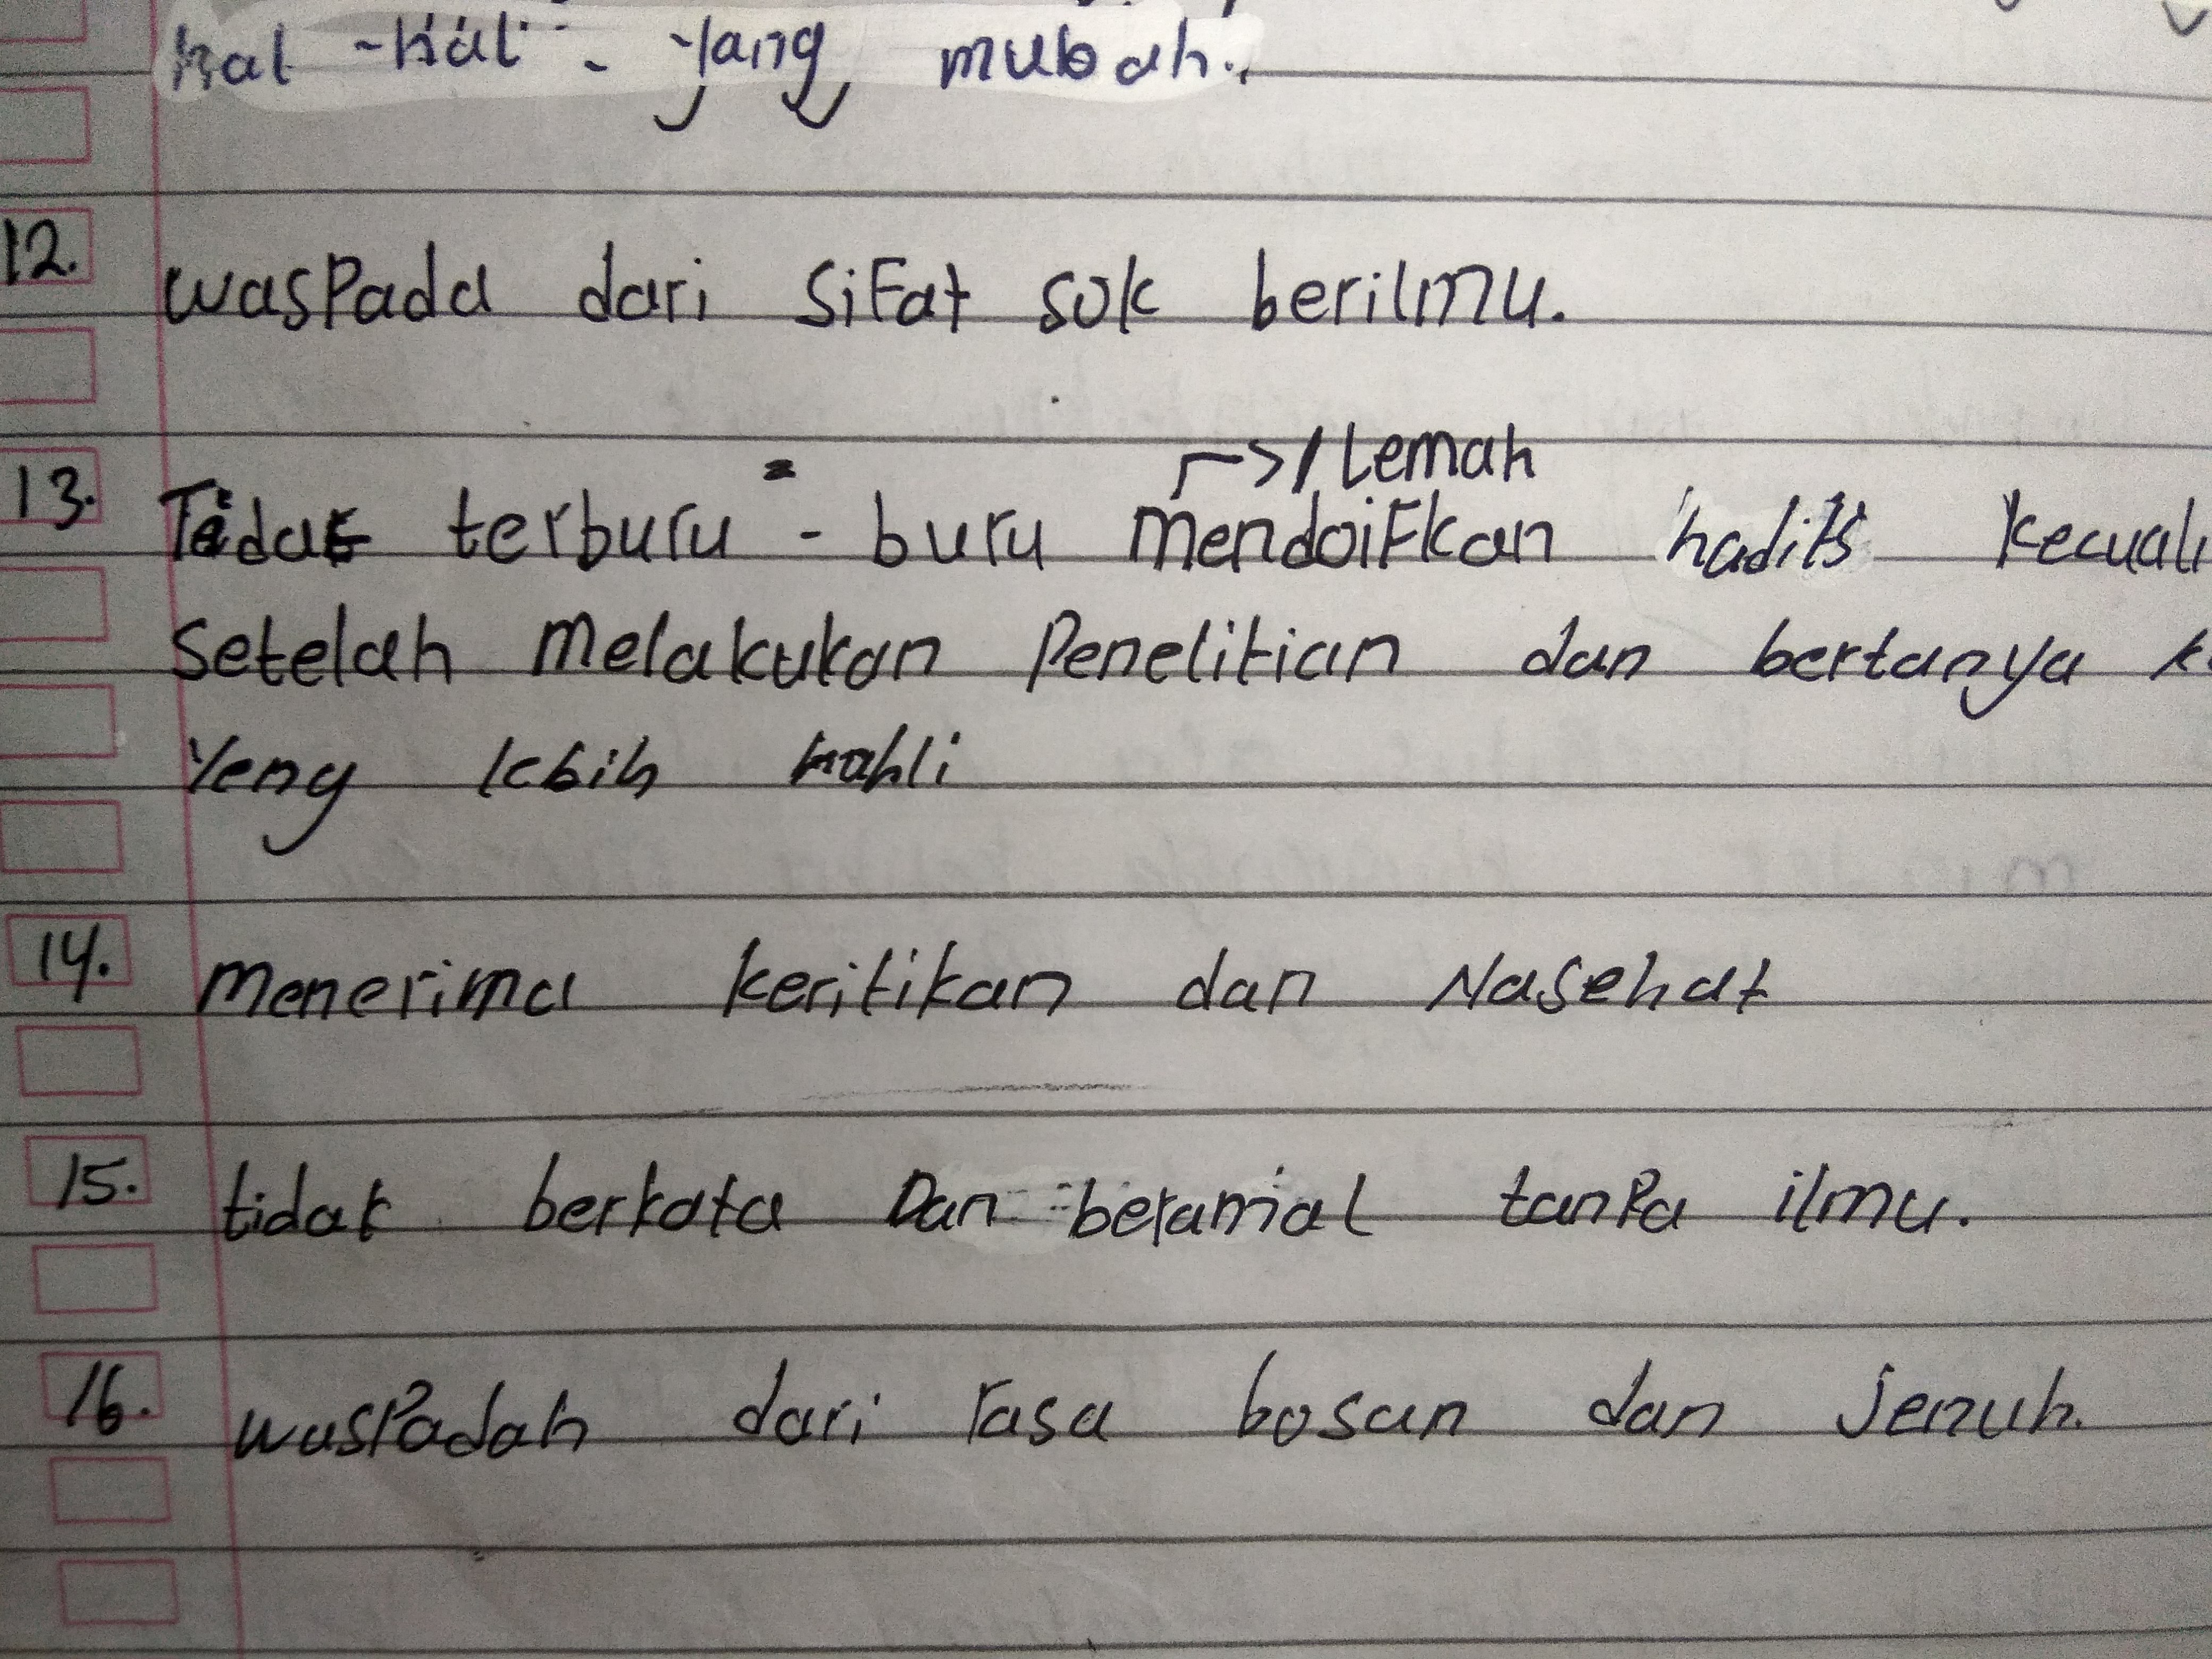 hal-hal yang mubah.
12. wasPada dari siFat sok berilmu.
→ / Lemah
13. Tidak terburu - buru mendoiFkan hadits kecuali
Setelah Melakukan Penelitian dan bertanya
Yeng lebih hahli
14. Menerima keritikan dan Nasehat
15. tidak berkata Dan beramal tanPa ilmu.
16. wasPadah dari rasa bosan dan jenuh.